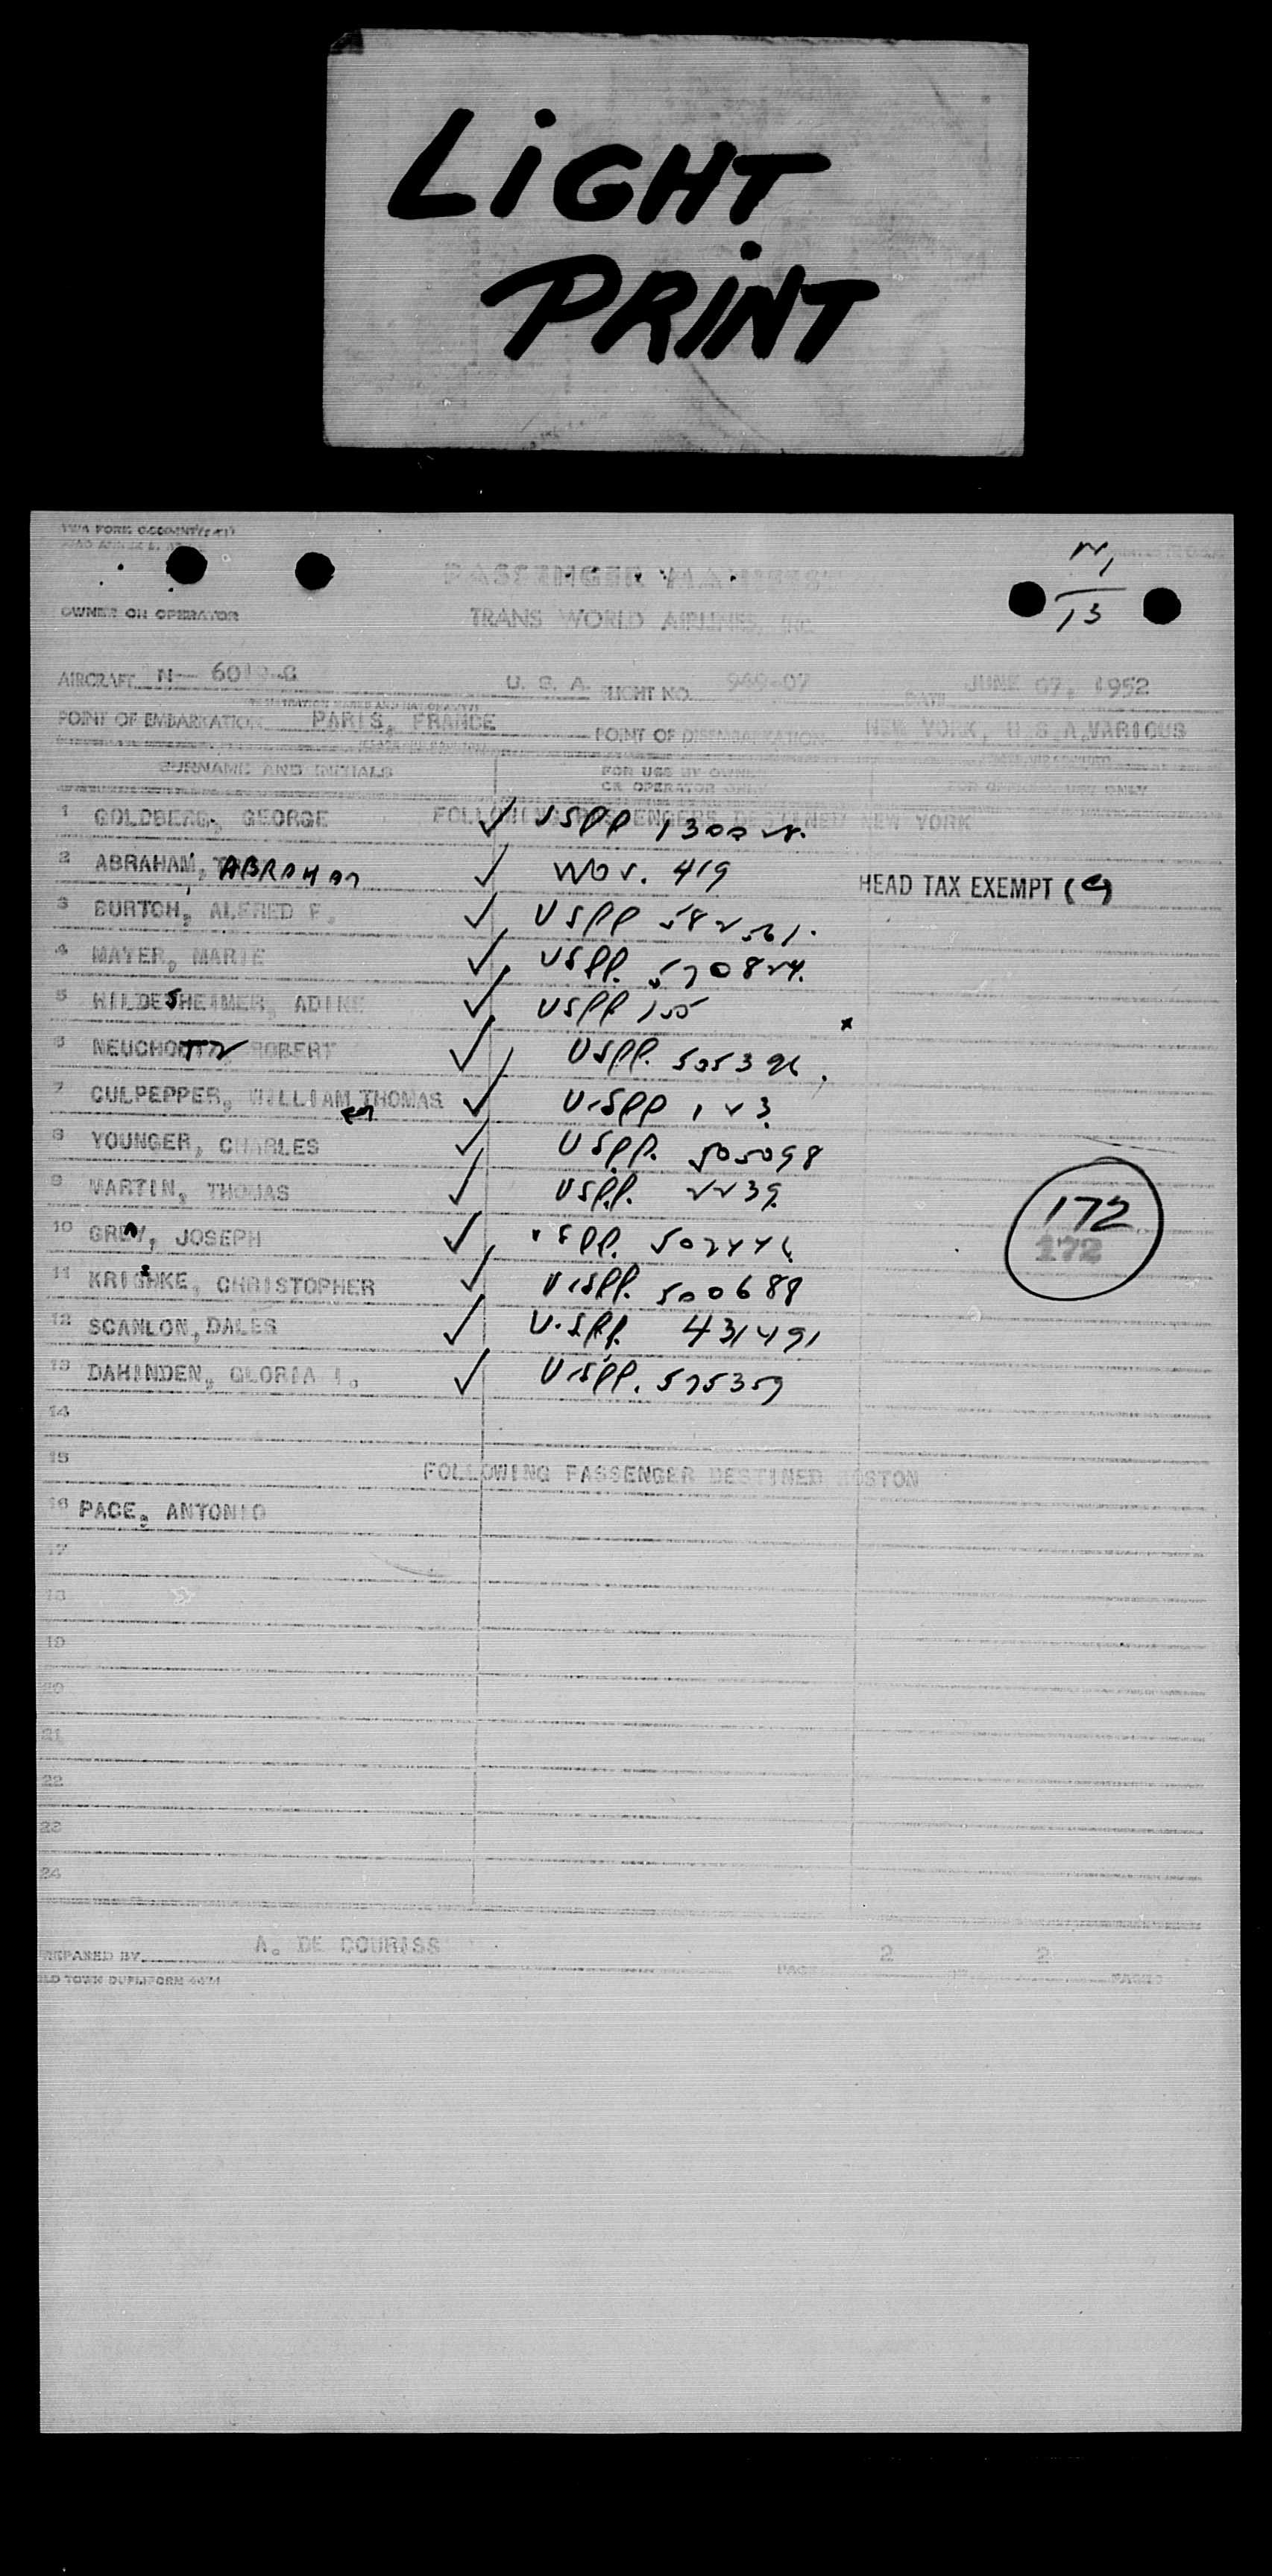 LIGHT
PRINT
OWNER OR OPERATOR
PASSENGER MANIFEST
TRANS WORLD AIRLINES, INC
13
AIRCRAFT N- U. S. A. FLIGHT NO. 949-07 DATE JUNE 07, 1952
POINT OF EMBARKATION PARIS, FRANCE POINT OF DISEMBARKATION NEW YORK, U.S.A, VARIOUS
SURNAME AND INITIALS FOR USE BY OWNER
OR OPERATOR ONLY FOR OFFICIAL USE ONLY
FOLLOWING PASSENGERS DESTINED NEW YORK
1 GOLDBERG, GEORGE ✓ USPP
2 ABRAHAM, ABRAHAM ✓ 419 HEAD TAX EXEMPT
3 BURTON, ALFRED F. ✓ USPP
4 MAYER, MARIE ✓ USPP.
5 HILDESHEIMER, ✓ USPP 155
6 ROBERT ✓ USPP.
7 CULPEPPER, WILLIAM THOMAS ✓ U.SPP 123
8 YOUNGER, CHARLES ✓ USPP. 505098
9 MARTIN, THOMAS ✓ USPP. 2239
10 JOSEPH ✓ USPP.
11 CHRISTOPHER ✓ U.SPP. 500688
12 SCANLON, DALES ✓ U.SPP. 431491
13 DAHINDEN, GLORIA I. ✓ U.SPP. 575359
172
172
14
15 FOLLOWING PASSENGER DESTINED BOSTON
16 PACE, ANTONIO
17
18
19
20
21
22
23
24
PREPARED BY A. DE COURISS PAGE 2 2 PAGES
OLD TOWN DUPLIFORM